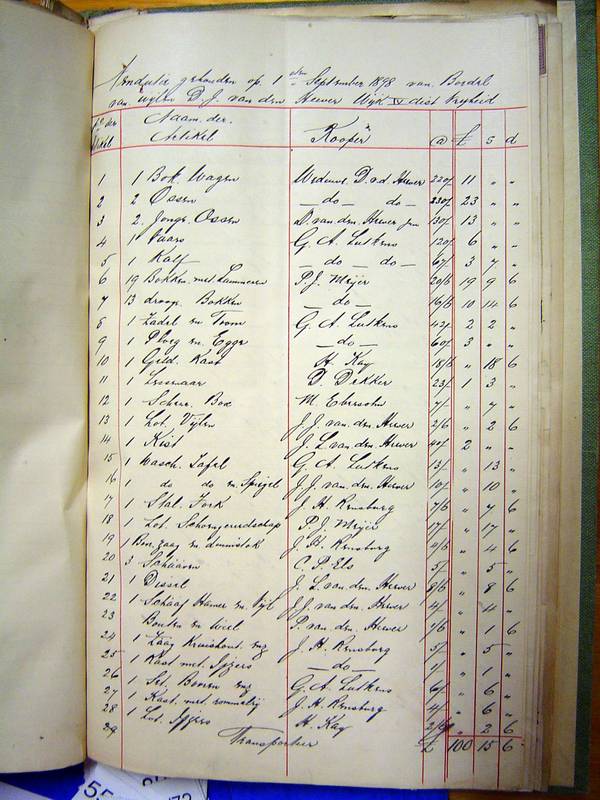 Vendutie gehouden op 1sten September 1898 van Boedel
van wijlen D. J. van den Heever Wijk IV dist Vryheid
No der Artikel Naam der Artikel Kooper @ £ s d
1 1 Bok Wagen Weduwe D. v. d. Heever 220/ 11 " "
2 2 Ossen — do — do — 230/ 23 " "
3 2 Jonge Ossen D. van den Heever Jun 130/ 13 " "
4 1 Vaars G. A. Lutkens 120/ 6 " "
5 1 Kalf — do — do — 67/ 3 7 "
6 19 Bokken met Lammeren P. J. Meijer 20/6 19 9 6
7 13 droog Bokken — do — 16/6 10 14 6
8 1 Zadel en Toom G. A. Lutkens 42/ 2 2 "
9 1 Ploeg en Egge — do — 60/ 3 " "
10 1 Geld Kast H. Kay 18/6 " 18 6
11 1 Lessenaar D. Dekker 23/ 1 3 "
12 1 Scheer Box M. Ebersohn 7/ " 7 "
13 1 Lot Vylen J. J. van den Heever 2/6 " 2 6
14 1 Kist J. L. van den Heever 40/ 2 " "
15 1 Wasch Tafel G. A. Lutkens 13/ " 13 "
16 1 do do en Spigel J. J. van den Heever 10/ " 10 "
17 1 Stal Fork J. H. Rensburg 7/6 " 7 6
18 1 Lot Schoengereedschap P. J. Meijer 17/ " 17 "
19 1 Boom zaag en duimstok J. H. Rensburg 4/6 " 4 6
20 3 Schaaven C. P. Els 5/ " 5 "
21 1 Dissel J. L. van den Heever 8/6 " 8 6
22 1 Schaaf Hamer en Byl J. J. van den Heever 4/ " 4 "
23 Bouten en wiel P. van den Heever 1/6 " 1 6
24 1 Zaag Kruishout enz J. H. Rensburg 5/ " 5 "
25 1 Kast met Yzers — do — 1/ " 1 "
26 1 Set Booren enz G. A. Lutkens 6/ " 6 "
27 1 Kast met rommelrij J. H. Rensburg 6/ " 6 "
28 1 Lot Yzers H. Kay 2/6 " 2 6
29 Transporteer £ 100 15 6